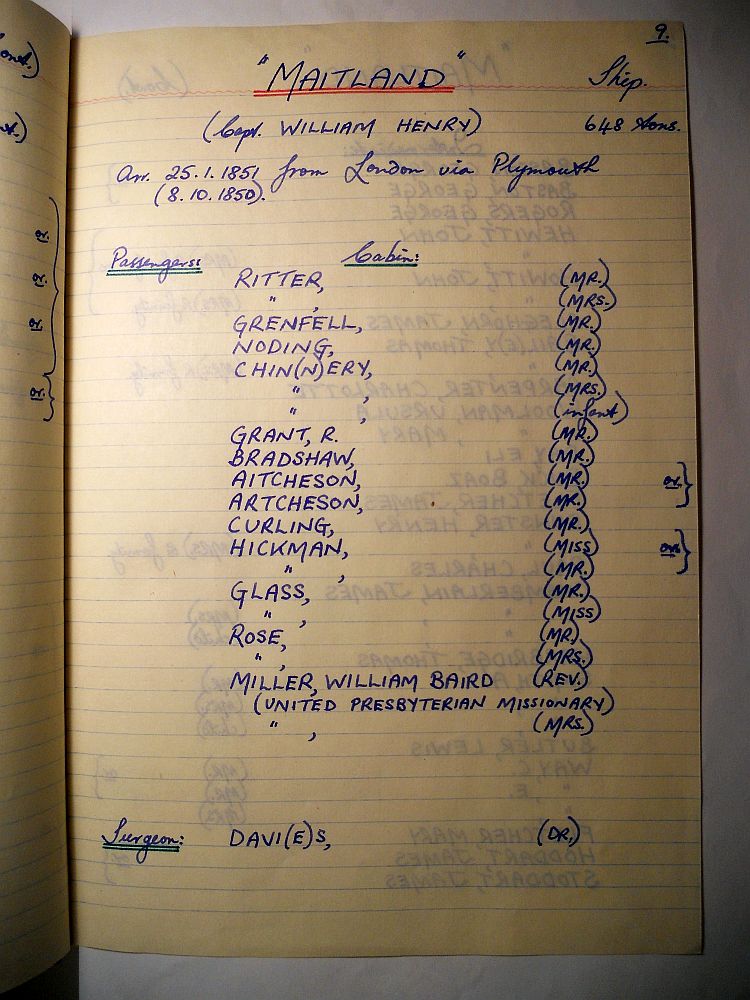 9.
"MAITLAND" Ship.
(Capt. WILLIAM HENRY) 648 tons.
Arr. 25.1.1851 from London via Plymouth
(8.10.1850).
Passengers: Cabin:
RITTER, (MR.)
" , (MRS.)
GRENFELL, (MR.)
NODING, (MR.)
CHIN(N)ERY, (MR.)
" , (MRS.)
" , (infant)
GRANT, R. (MR.)
BRADSHAW, (MR.)
AITCHESON, (MR.) or }
ARTCHESON, (MR.)
CURLING, (MR.)
HICKMAN, (MISS) or }
" , (MR.)
GLASS, (MR.)
" , (MISS)
ROSE, (MR.)
" , (MRS.)
MILLER, WILLIAM BAIRD (REV.)
(UNITED PRESBYTERIAN MISSIONARY)
" , (MRS.)
Surgeon: DAVI(E)S, (DR.)